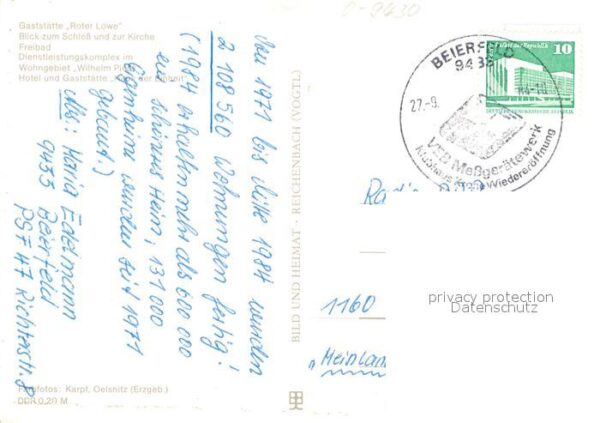 Gaststätte „Roter Löwe"
Blick zum Schloß und zur Kirche
Freibad
Dienstleistungskomplex im
Wohngebiet „Wilhelm
Hotel und Gaststätte
Von 1971 bis Mitte 1984 wurden
2 108 560 Wohnungen fertig!
(1984 erhalten mehr als 600 000
ein schönres Heim, 131 000
Eigenheime wurden seit 1971
gebaut)
Abs: Maria Edelmann
9433 Beierfeld
PSF 47 Richterstr. 8
Farbfotos: Karpf, Oelsnitz (Erzgeb.)
DDR 0,20 M
BILD UND HEIMAT · REICHENBACH (VOGTL)
BEIERFELD
27.-9.
VEB Meßgerätewerk
Wiedereröffnung
10
1160
"Mein Lan
privacy protection
Datenschutz